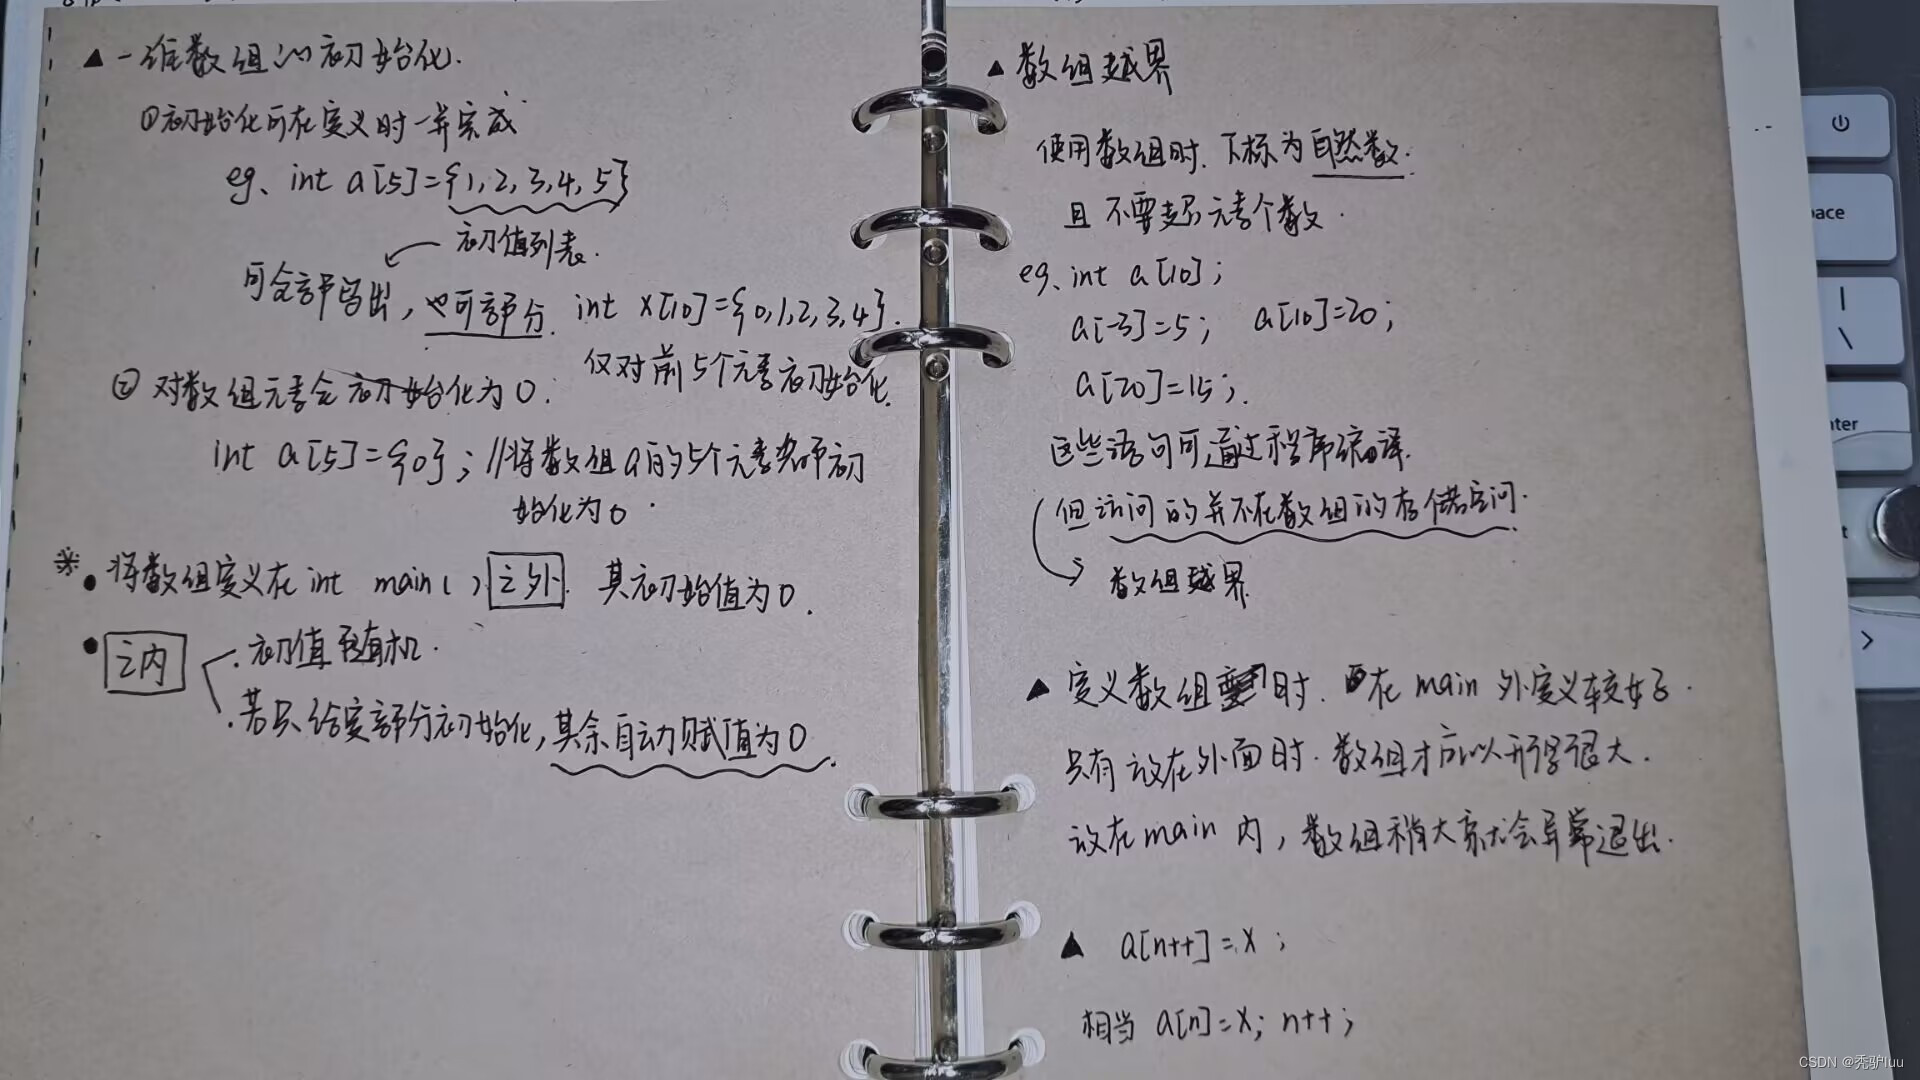 ▲ 一维数组的初始化.
①初始化可在定义时一并完成
eg、int a[5]={1,2,3,4,5}
初值列表.
可全部写出,也可部分. int x[10]={0,1,2,3,4}.
仅对前5个元素初始化.
② 对数组元素全初始化为0:
int a[5]={0}; //将数组a的5个元素都初
始化为0.
※
• 将数组定义在int main()之外. 其初始值为0.
• 之内
. 初值随机.
. 若只给定部分初始化,其余自动赋值为0.
▲ 数组越界
使用数组时. 下标为自然数.
且不要超元素个数.
eg、int a[10];
a[-3]=5; a[10]=20;
a[20]=15;.
这些语句可通过程序编译.
但访问的并不在数组的存储空间.
数组越界
▲ 定义数组时. 在main外定义较好.
只有放在外面时. 数组才可以开得很大.
放在main内,数组稍大就会异常退出.
▲ a[n++]=x;
相当 a[n]=x; n++;
ace
ter
CSDN @秃驴luu